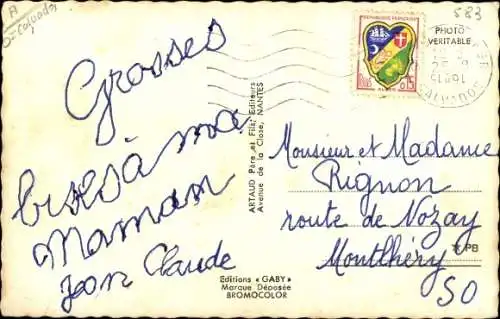 583
REPUBLIQUE FRANÇAISE
0,15
ALGER
PHOTO
VERITABLE
CALVADOS
Grosses
bises à ma
Maman
Jean Claude
ARTAUD Père et Fils, Editeurs
Avenue de la Close, NANTES
Editions « GABY »
Marque Déposée
BROMOCOLOR
Monsieur et Madame
Rignon
route de Nozay
Montlhéry
PB
SO